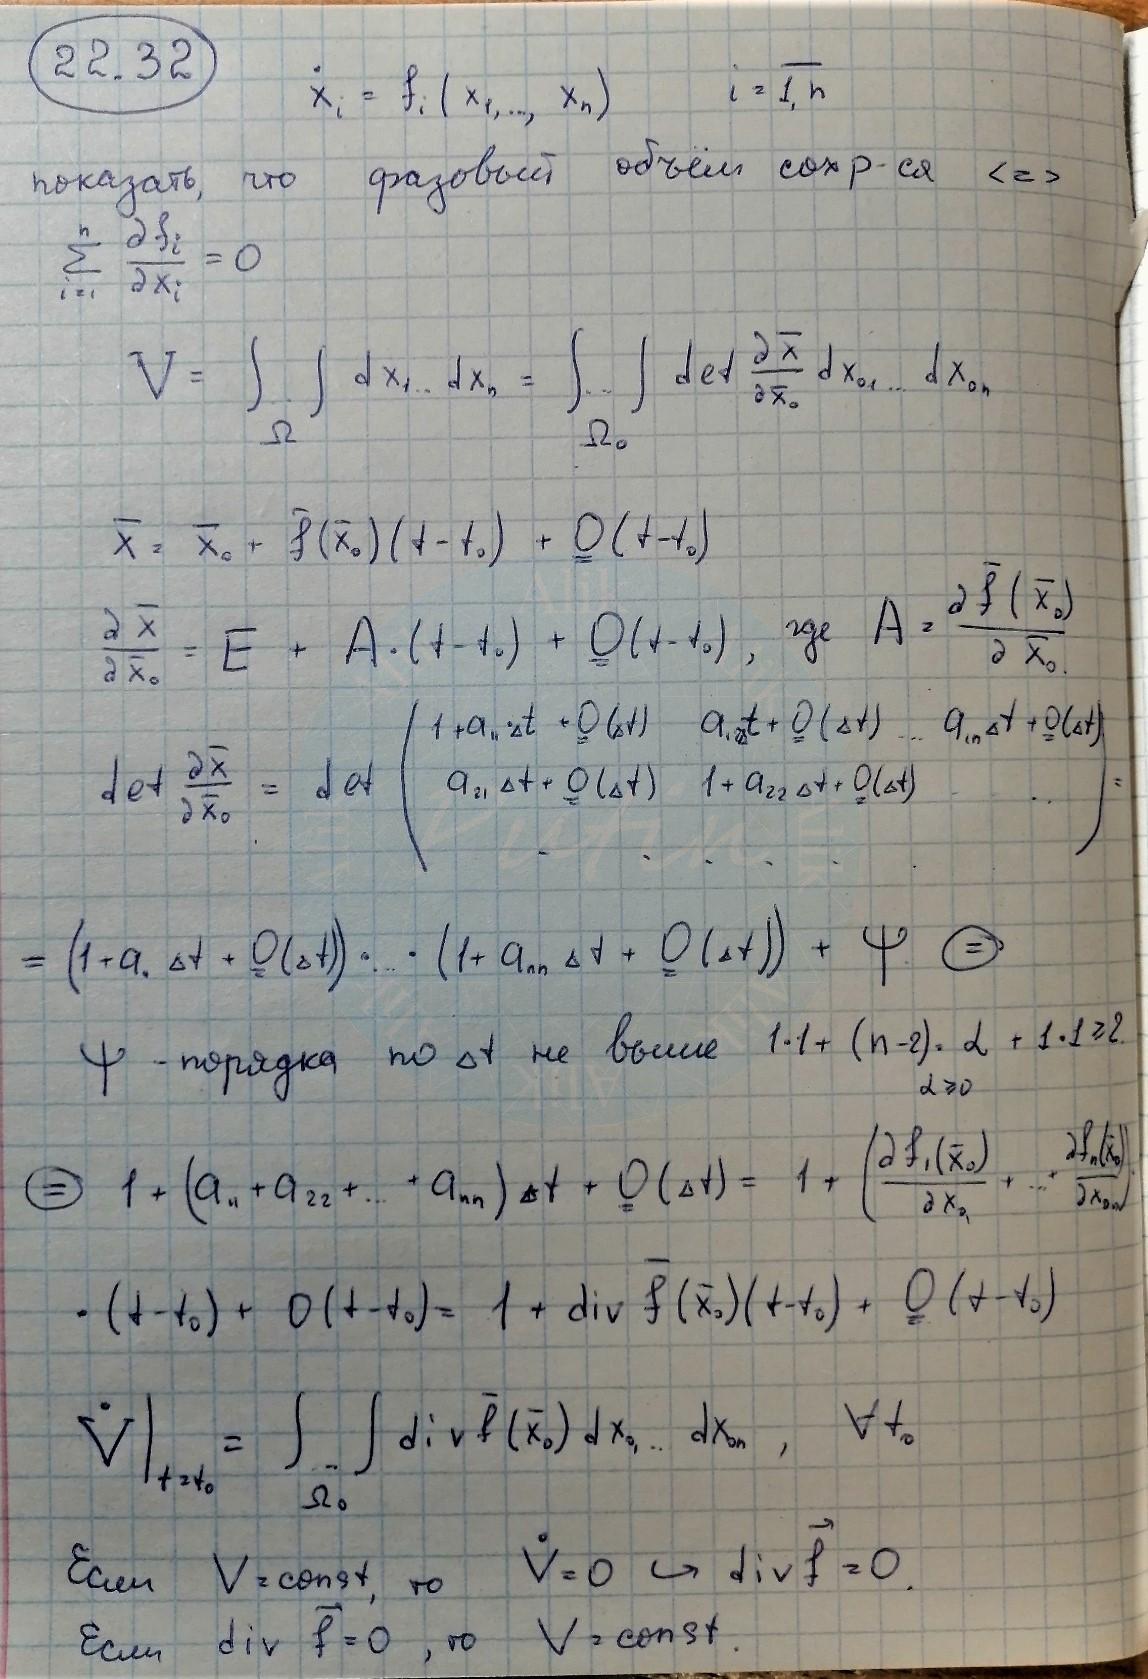 22.32
ẋᵢ = fᵢ(x₁,..., xₙ) i = 1,n
показать, что фазовый объём сохр-ся <=>
∑ᵢ₌₁ⁿ ∂fᵢ/∂xᵢ = 0
V = ∫...∫_Ω dx₁...dxₙ = ∫...∫_Ω₀ det ∂x̄/∂x̄₀ dx₀₁... dx₀ₙ
x̄ = x̄₀ + f̄(x̄₀)(t-t₀) + O(t-t₀)
∂x̄/∂x̄₀ = E + A·(t-t₀) + O(t-t₀), где A = ∂f̄(x̄₀)/∂x̄₀.
det ∂x̄/∂x̄₀ = det ( 1+a₁₁Δt + O(Δt) a₁₂Δt + O(Δt) ... a₁ₙΔt + O(Δt)
a₂₁Δt + O(Δt) 1+a₂₂Δt + O(Δt) .. ) =
= (1+a₁Δt + O(Δt))·...·(1+aₙₙΔt + O(Δt)) + Ψ =
Ψ - порядка по Δt не выше 1·1 + (n-2)·α + 1·1 ≥ 2
α≥0
= 1 + (a₁₁+a₂₂+...+aₙₙ)Δt + O(Δt) = 1 + (∂f₁(x̄₀)/∂x₀₁ + ... + ∂fₙ(x̄₀)/∂x₀ₙ)
·(t-t₀) + O(t-t₀) = 1 + div f̄(x̄₀)(t-t₀) + O(t-t₀)
V̇|ₜ₌ₜ₀ = ∫...∫_Ω₀ div f̄(x̄₀) dx₀₁... dx₀ₙ, ∀t₀
Если V=const, то V̇=0 ↪ div f⃗=0.
Если div f⃗=0, то V=const.